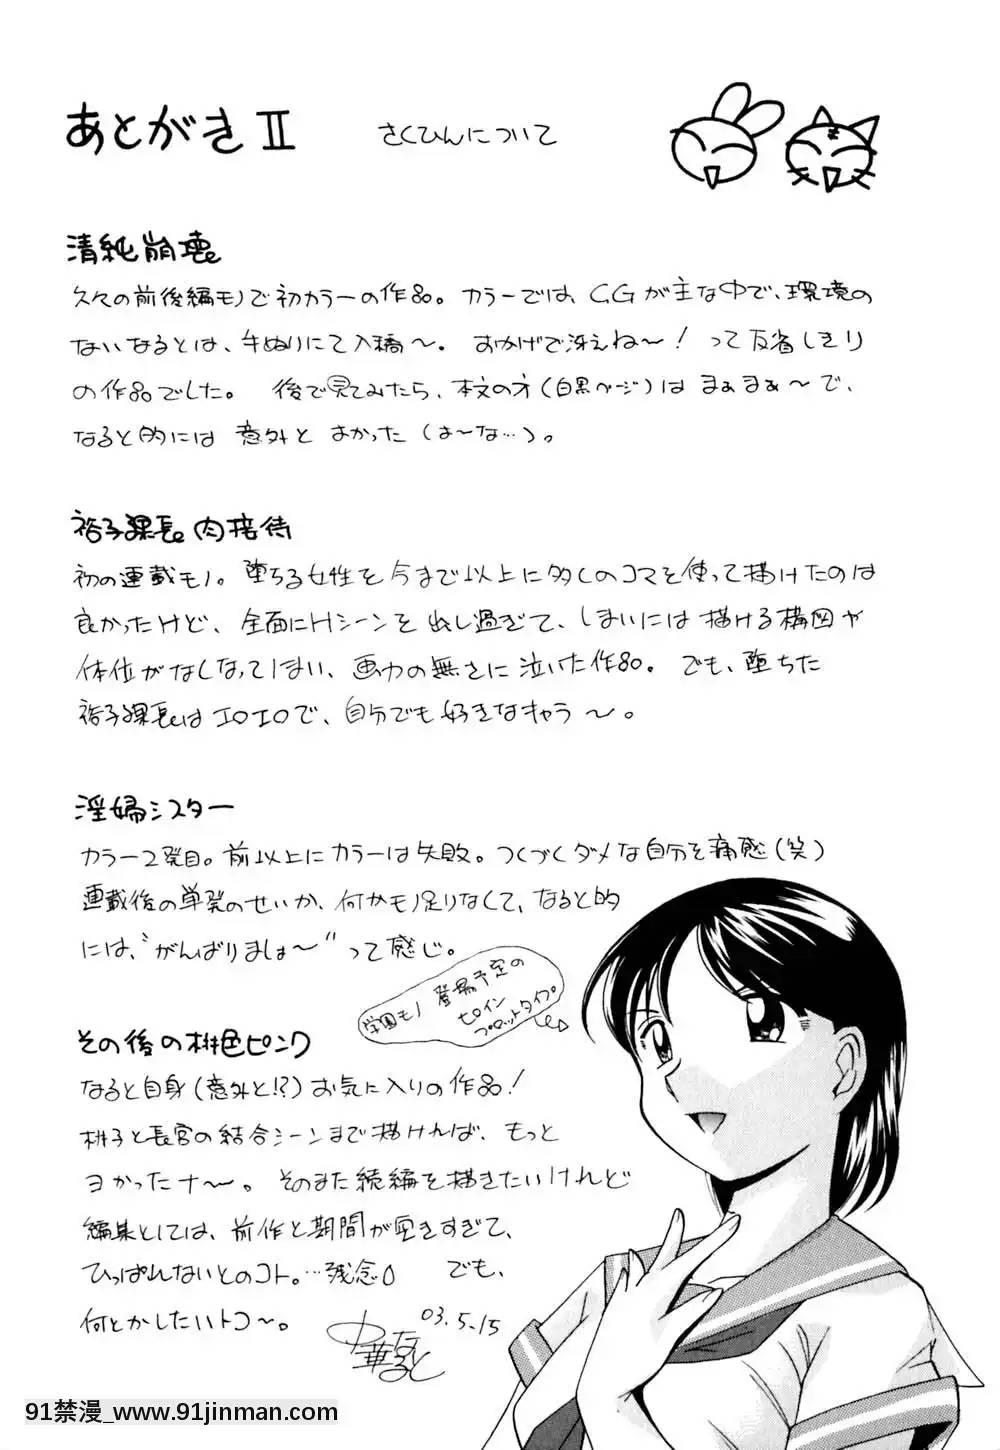 あとがきⅡ さくひんについて
清純崩壊。
久々の前後編モノで初カラーの作品。カラーでは、CGが主な中で、環境の
ないなるとは、手ぬりにて入稿～。おかげで冴えね～！って反省しきり
の作品でした。後で見てみたら、本文の方（白黒ページ）はまぁまぁ～で、
なると的には意外とよかった（は～な…）。
裕子課長。肉接待
初の連載モノ。堕ちる女性を今まで以上に多くのコマを使って描けたのは
良かったけど、全面にHシーンを出し過ぎて、しまいには描ける構図や
体位がなくなってしまい、画力の無さに泣いた作品。でも、堕ちた
裕子課長はエロエロで、自分でも好きなキャラ～。
淫婦シスター
カラー2発目。前以上にカラーは失敗。つくづくダメな自分を痛感（笑）
連載後の単発のせいか、何かモノ足りなくて、なると的
には、“がんばりましょ～”って感じ。
学園モノ 登場予定の
ヒロイン
プロットタイプ。
その後の桃色ピンク
なると自身（意外と!?）お気に入りの作品！
桃子と長官の結合シーンまで描ければ、もっと
ヨかったナ～。そのまた続編を描きたいけれど
編集としては、前作と期間が空きすぎて、
ひっぱれないとのコト。…残念。でも、
何とかしたいトコ～。
03.5.15
中華なると
91禁漫_www.91jinman.com